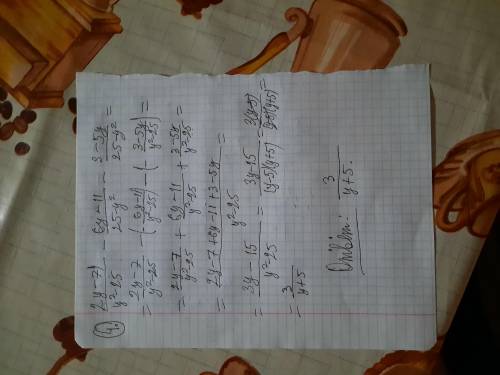 4. (2y-7)/(y²-25) - (6y-11)/(25-y²) - (3-5y)/(25-y²) =
= (2y-7)/(y²-25) - (-(6y-11)/(y²-25)) - (-(3-5y)/(y²-25)) =
= (2y-7)/(y²-25) + (6y-11)/(y²-25) + (3-5y)/(y²-25) =
= (2y-7+6y-11+3-5y)/(y²-25) =
= (3y-15)/(y²-25) = (3y-15)/((y-5)(y+5)) = (3(y-5))/((y-5)(y+5)) =
= 3/(y+5)
Ответ: 3/(y+5).